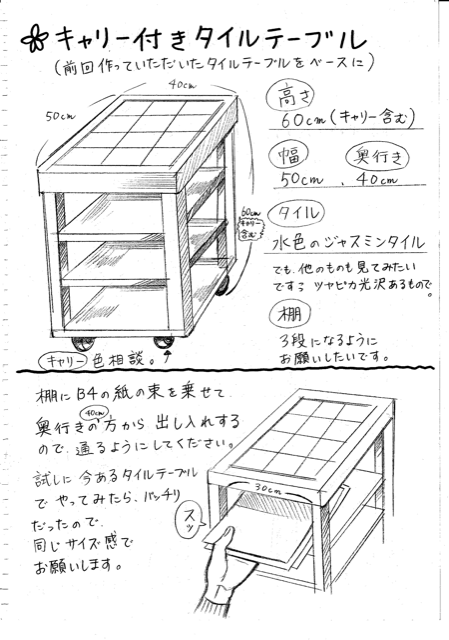 キャリー付きタイルテーブル
(前回作っていただいたタイルテーブルをベースに)
40cm
50cm
60cm
キャリー
含む
キャリー 色相談。
高さ
60cm(キャリー含む)
幅 奥行き
50cm、40cm
タイル
水色のジャスミンタイル
でも、他のものも見てみたい
です。ツヤピカ光沢あるもので。
棚
3段になるように
お願いしたいです。
棚にB4の紙の束を乗せて
40cm
奥行きの方から出し入れする
ので、通るようにしてください。
試しに今あるタイルテーブル
でやってみたら、バッチリ
だったので、
同じサイズ感で
お願いします。
30cm
スッ